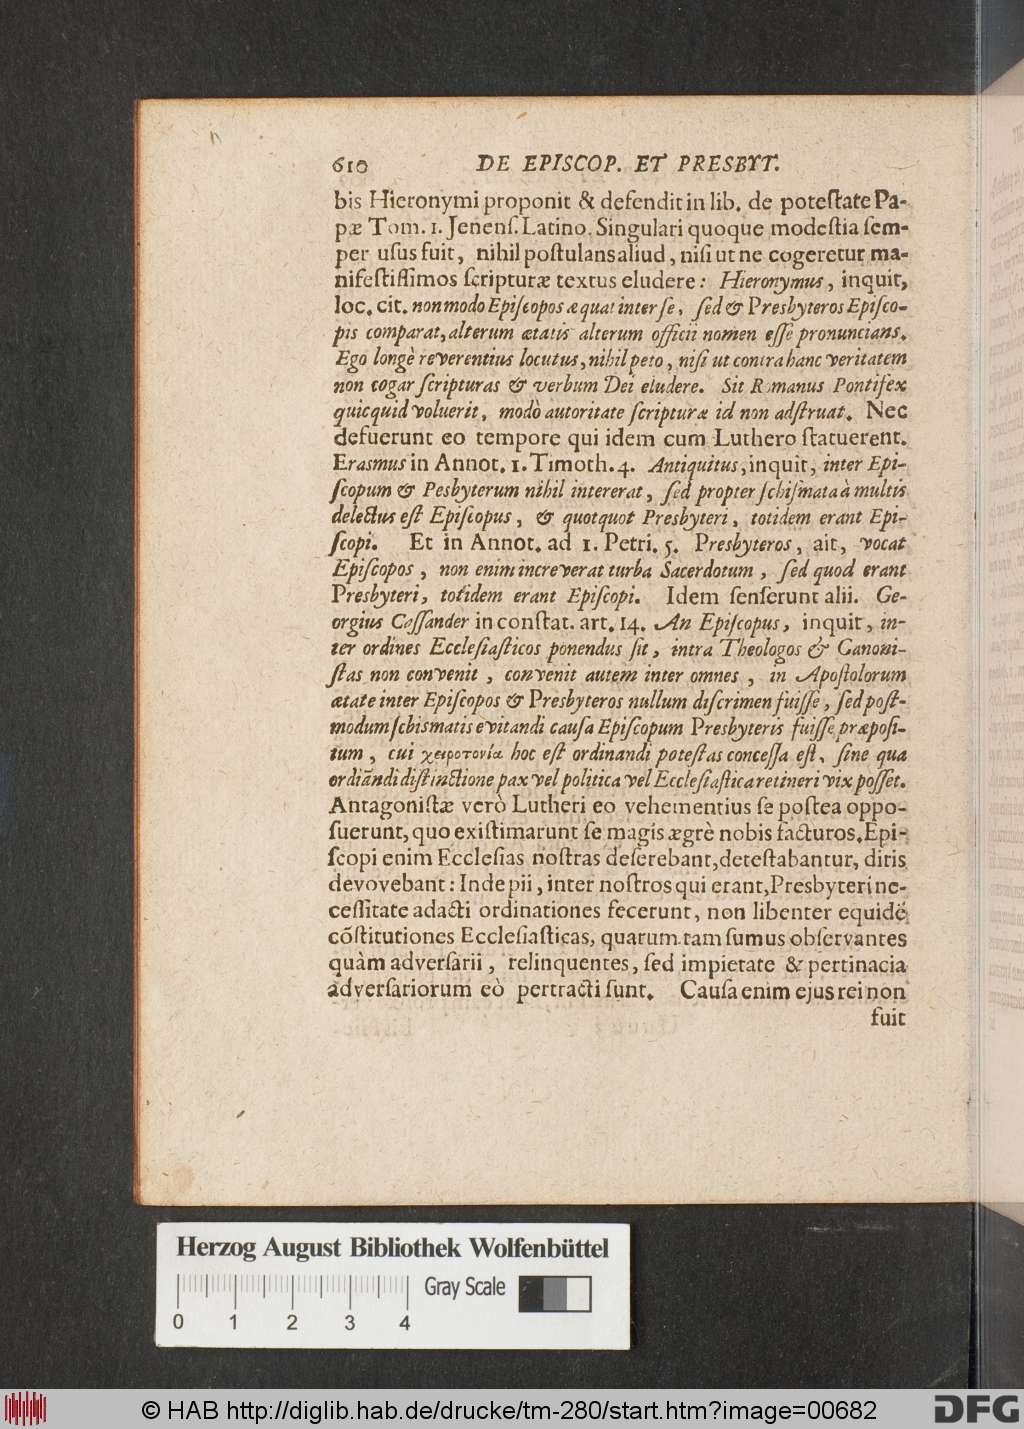 610 DE EPISCOP. ET PRESBYT.
bis Hieronymi proponit & defendit in lib. de poteſtate Pa-
pæ Tom. 1. Jenenſ. Latino. Singulari quoque modeſtia ſem-
per uſus fuit, nihil poſtulans aliud, niſi ut ne cogeretur ma-
nifeſtiſſimos ſcripturæ textus eludere: Hieronymus, inquit,
loc. cit. non modo Epiſcopos æquat inter ſe, ſed & Presbyteros Epiſco-
pis comparat, alterum ætatis alterum officii nomen eſſe pronuncians.
Ego longè reverentius locutus, nihil peto, niſi ut contra hanc veritatem
non cogar ſcripturas & verbum Dei eludere. Sit Romanus Pontifex
quicquid voluerit, modò autoritate ſcripturæ id non adſtruat. Nec
defuerunt eo tempore qui idem cum Luthero ſtatuerent.
Erasmus in Annot. 1. Timoth. 4. Antiquitus, inquit, inter Epi-
ſcopum & Pesbyterum nihil intererat, ſed propter ſchiſmata à multis
delectus eſt Epiſcopus, & quotquot Presbyteri, totidem erant Epi-
ſcopi. Et in Annot. ad 1. Petri. 5. Presbyteros, ait, vocat
Epiſcopos, non enim increverat turba Sacerdotum, ſed quod erant
Presbyteri, totidem erant Epiſcopi. Idem ſenſerunt alii. Ge-
orgius Caſſander in conſtat. art. 14. An Epiſcopus, inquit, in-
ter ordines Eccleſiaſticos ponendus ſit, intra Theologos & Canoni-
ſtas non convenit, convenit autem inter omnes, in Apoſtolorum
ætate inter Epiſcopos & Presbyteros nullum diſcrimen fuiſſe, ſed poſt-
modum ſchismatis evitandi cauſa Epiſcopum Presbyteris fuiſſe præpoſi-
tum, cui χειροτονία hoc eſt ordinandi poteſtas conceſſa eſt, ſine qua
ordinãndi diſtinctione pax vel politica vel Eccleſiaſtica retineri vix poſſet.
Antagoniſtæ verò Lutheri eo vehementius ſe poſtea oppo-
ſuerunt, quo exiſtimarunt ſe magis ægrè nobis facturos. Epi-
ſcopi enim Eccleſias noſtras deſerebant, deteſtabantur, diris
devovebant: Inde pii, inter noſtros qui erant, Presbyteri ne-
ceſſitate adacti ordinationes fecerunt, non libenter equidẽ
cõſtitutiones Eccleſiaſticas, quarum tam ſumus obſervantes
quàm adverſarii, relinquentes, ſed impietate & pertinacia
adverſariorum eò pertracti ſunt. Cauſa enim ejus rei non
fuit
Herzog August Bibliothek Wolfenbüttel
Gray Scale
0 1 2 3 4
© HAB http://diglib.hab.de/drucke/tm-280/start.htm?image=00682
DFG